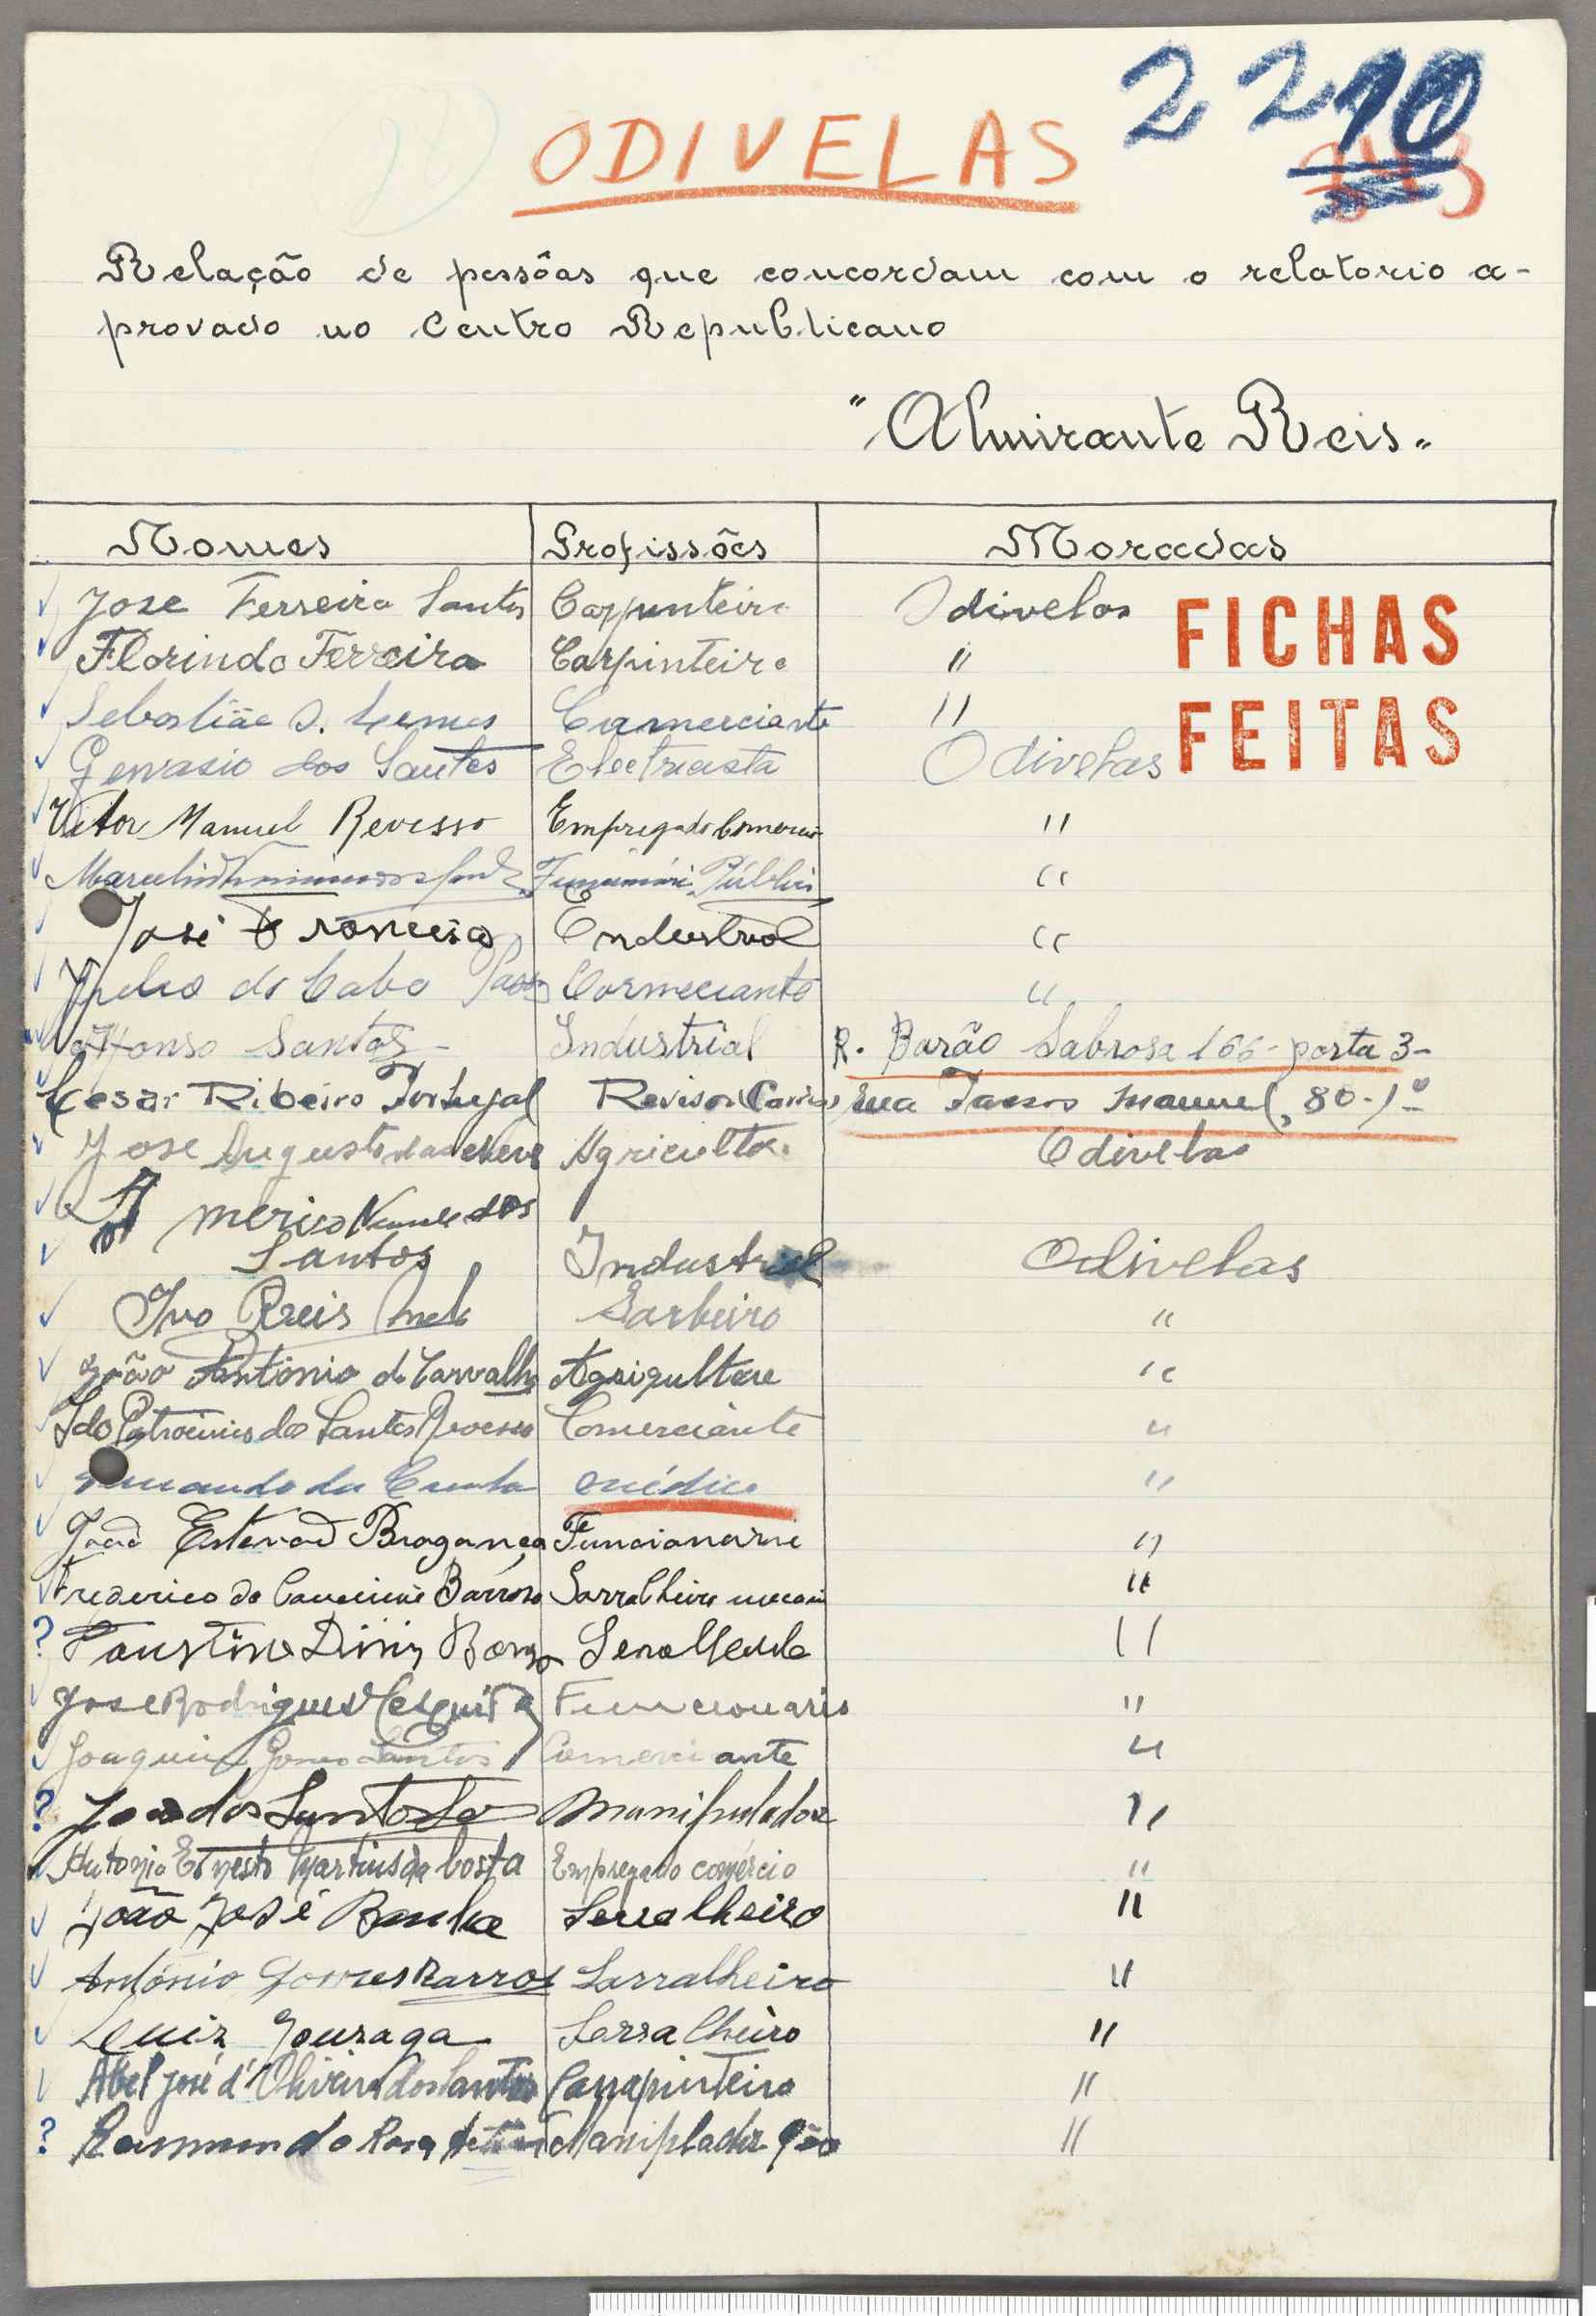 2210
ODIVELAS
Relação de pessôas que concordam com o relatorio a-
provado no Centro Republicano
"Almirante Reis"
Nomes Profissões Moradas
Jose Ferreira Santos Carpinteiro Odivelas
FICHAS
Florindo Ferreira Carpinteiro "
Sebastião S. Lemos Comerciante "
FEITAS
Gervasio dos Santos Electricista Odivelas
Vitor Manuel Revesso Empregado Comercio "
Funcionário Público "
José Francisco Endustrial "
do Cabo Comerciante "
Affonso Santos Industrial R. Barão Sabrosa 166-porta 3-
Cesar Ribeiro Portugal Revisor Carris Rua Passos Manuel, 80-1º
Jose Augusto das Neves Agricultor Odivelas
Americo Nunes dos
Santos Industrial Odivelas
Ivo Reis Barbeiro "
João Antonio de Carvalho Agrigultore "
Patrocinio dos Santos Comerciante "
da Cunha médico "
João Estevão Bragança Funcionario "
Frederico da Conceição Barroso Sarralheiro mecani "
? Faustino Diniz "
Jose Rodrigues Mesquita Funcionario "
Joaquim Gomes Santos Comerciante "
? dos Santos Manipulador "
Antonio Ernesto Martins da Costa Empregado comércio "
João José Serralheiro "
António Gomes Barros Sarralheiro "
Luiz Gonzaga Serralheiro "
Abel José d'Oliveira dos Santos Carrapinteiro "
? Raimundo Rosa Maniplador Pão "